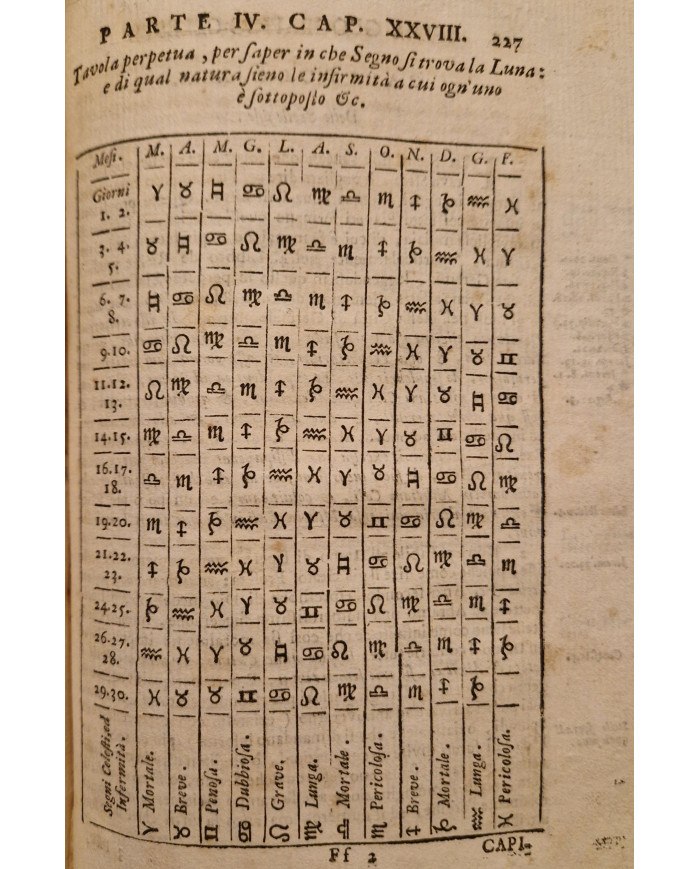 PARTE IV. CAP. XXVIII. 227
Tavola perpetua, per ſaper in che Segno ſi trova la Luna:
e di qual natura ſieno le infirmità a cui ogn'uno
è ſottopoſto &c.
Meſi. M. A. M. G. L. A. S. O. N. D. G. F.
Giorni
1. 2. ♈ ♉ ♊ ♋ ♌ ♍ ♎ ♏ ♐ ♑ ♒ ♓
3. 4.
5. ♉ ♊ ♋ ♌ ♍ ♎ ♏ ♐ ♑ ♒ ♓ ♈
6. 7.
8. ♊ ♋ ♌ ♍ ♎ ♏ ♐ ♑ ♒ ♓ ♈ ♉
9.10. ♋ ♌ ♍ ♎ ♏ ♐ ♑ ♒ ♓ ♈ ♉ ♊
11.12.
13. ♌ ♍ ♎ ♏ ♐ ♑ ♒ ♓ ♈ ♉ ♊ ♋
14.15. ♍ ♎ ♏ ♐ ♑ ♒ ♓ ♈ ♉ ♊ ♋ ♌
16.17.
18. ♎ ♏ ♐ ♑ ♒ ♓ ♈ ♉ ♊ ♋ ♌ ♍
19.20. ♏ ♐ ♑ ♒ ♓ ♈ ♉ ♊ ♋ ♌ ♍ ♎
21.22.
23. ♐ ♑ ♒ ♓ ♈ ♉ ♊ ♋ ♌ ♍ ♎ ♏
24.25. ♑ ♒ ♓ ♈ ♉ ♊ ♋ ♌ ♍ ♎ ♏ ♐
26.27.
28. ♒ ♓ ♈ ♉ ♊ ♋ ♌ ♍ ♎ ♏ ♐ ♑
29.30. ♓ ♉ ♉ ♊ ♋ ♌ ♍ ♎ ♏ ♐ ♑
Segni Celeſti, ed
Infermità.
♈ Mortale.
♉ Breve.
♊ Penoſa.
♋ Dubbioſa.
♌ Grave.
♍ Lunga.
♎ Mortale.
♏ Pericoloſa.
♐ Breve.
♑ Mortale.
♒ Lunga.
♓ Pericoloſa.
Ff 2 CAPI-